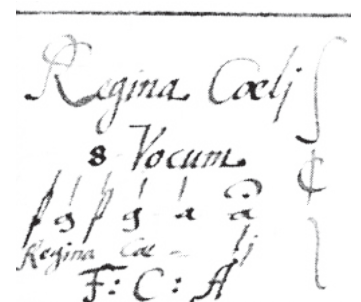 Regina Cœlj
8 Vocum
Regina Cœ - lj
F: C: A